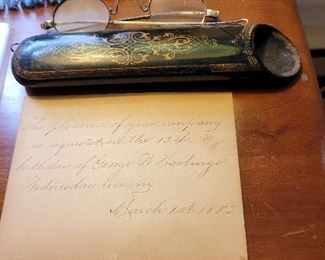 The pleasure of your company
is requested on the 15th
birthday of George W Hastings
Wednesday evening
March 1st 1882